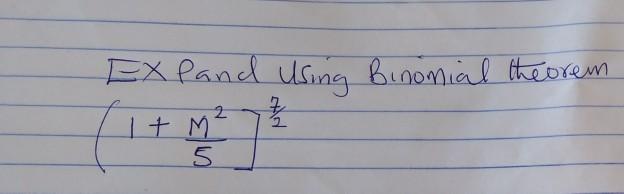 EXPand Using Binomial theorem
(1 + M²/5]^7/2